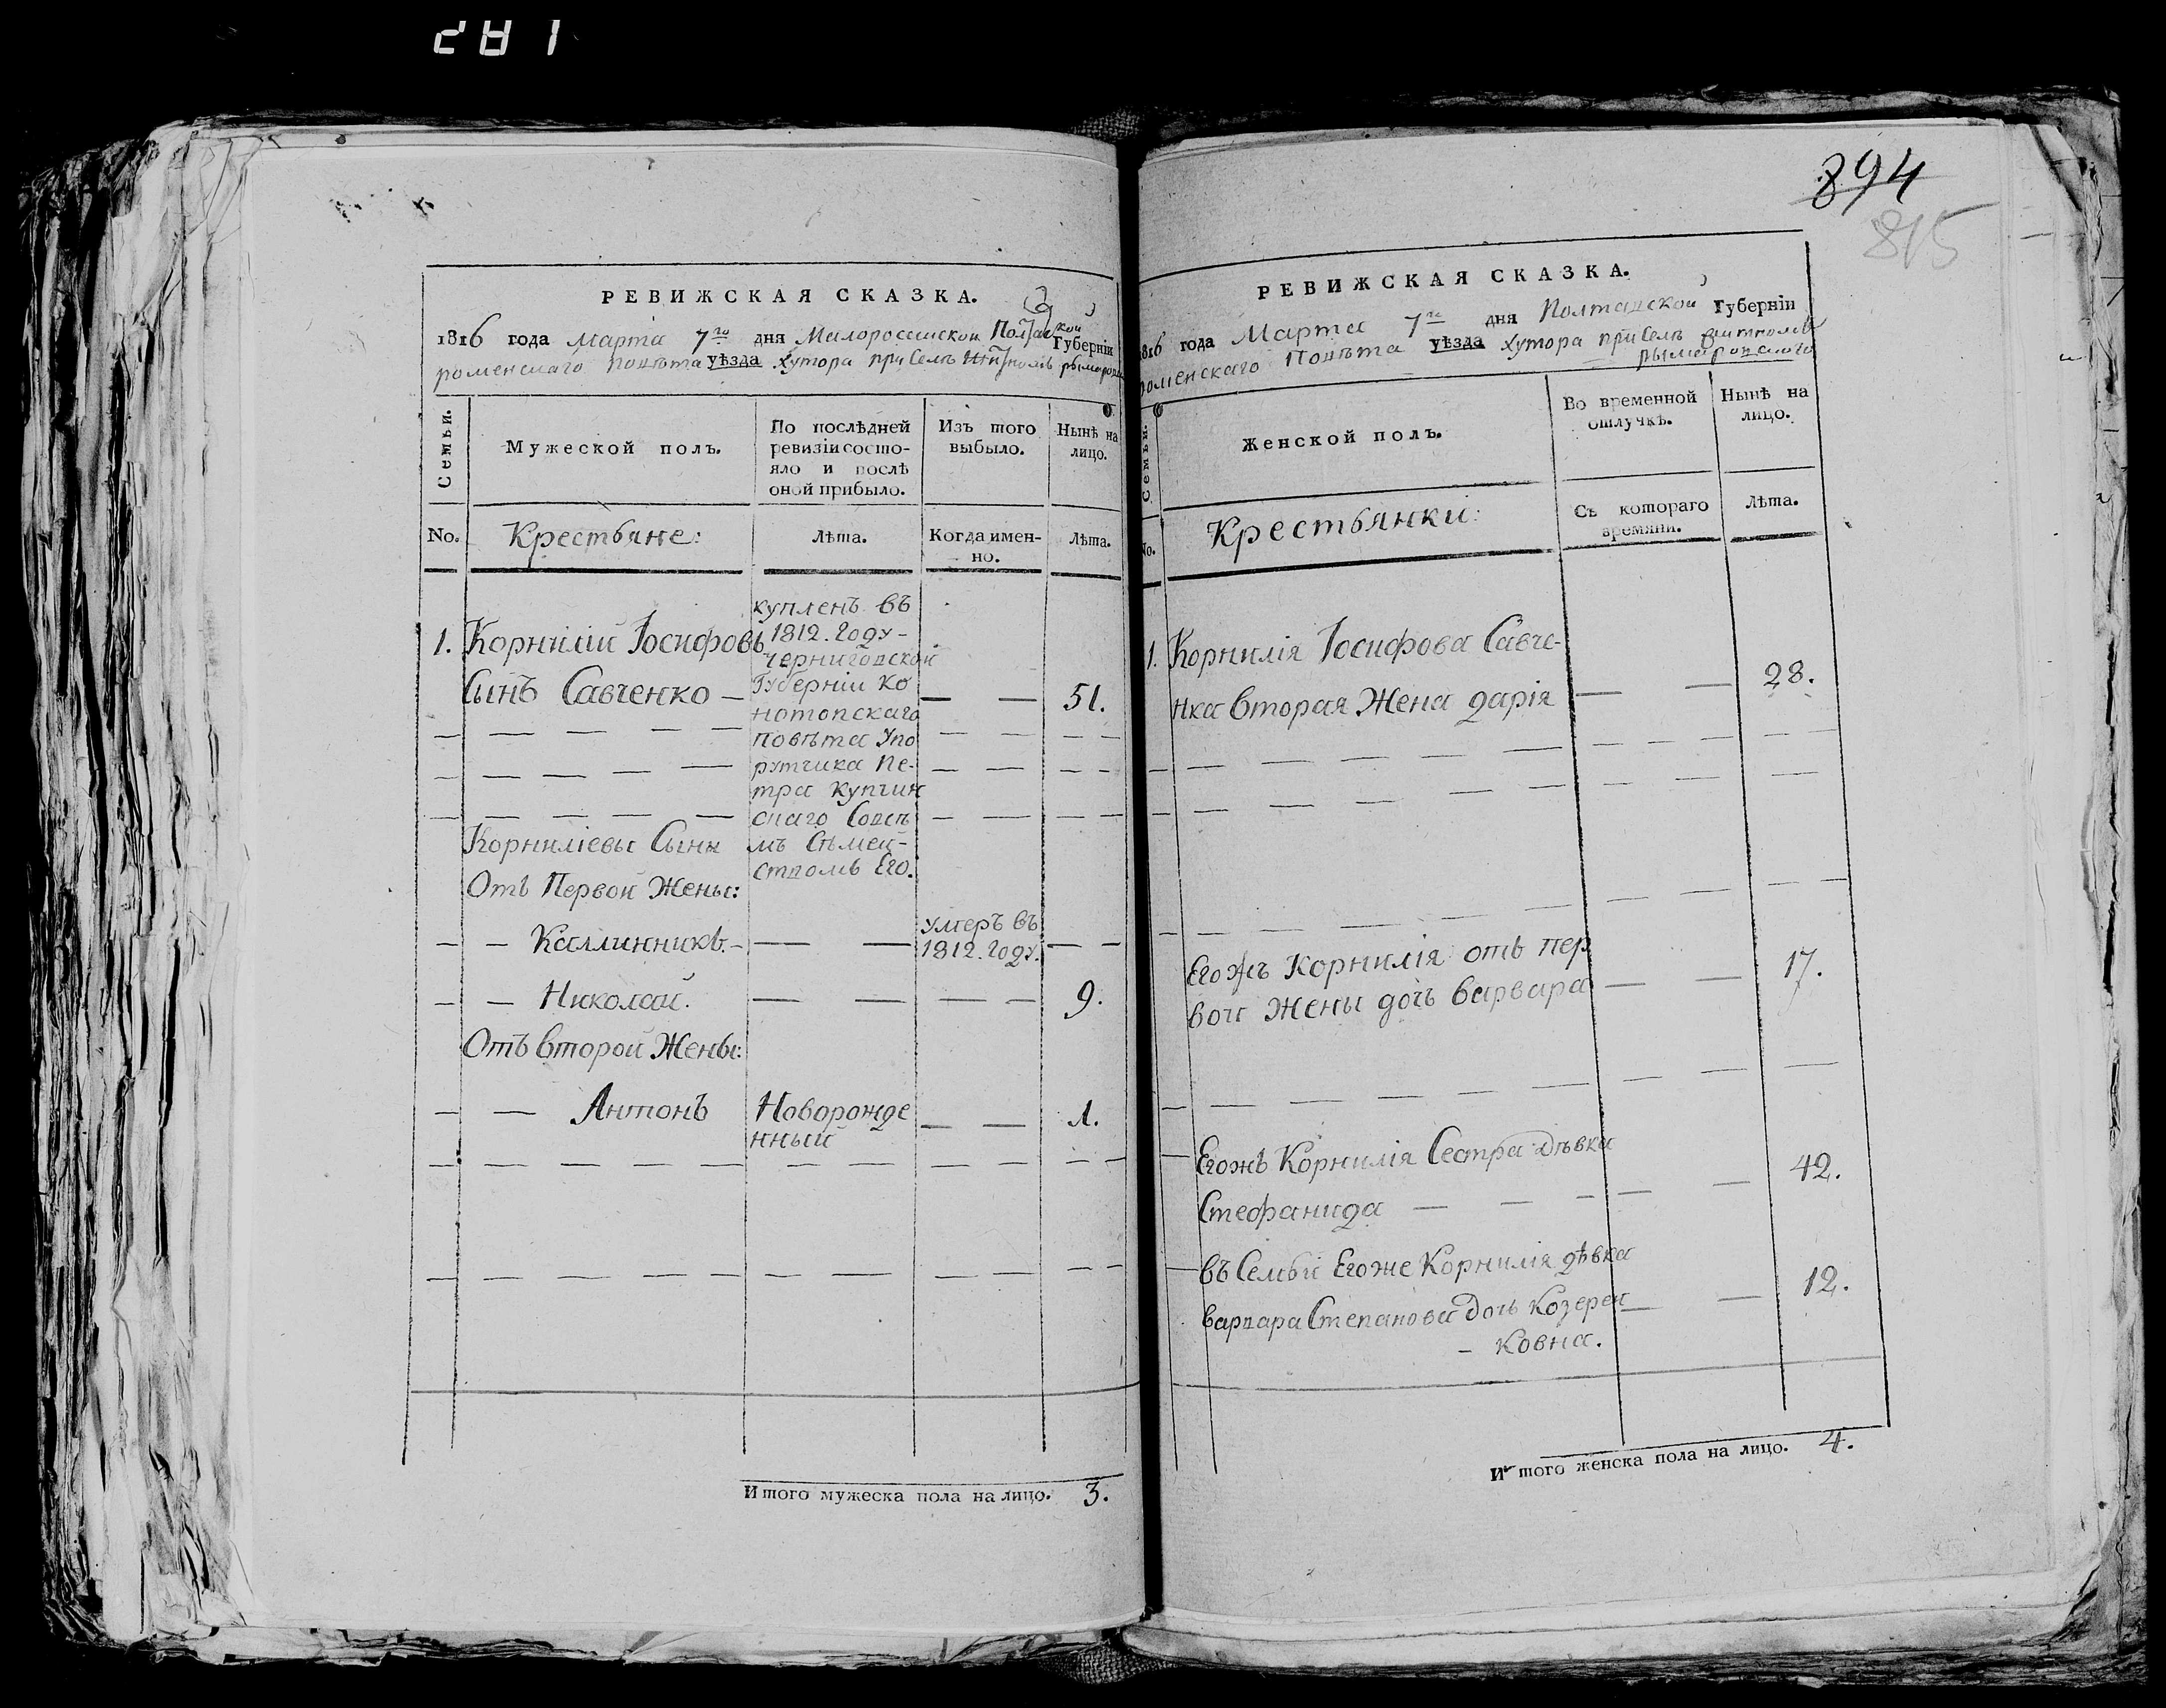 281
894
815
РЕВИЖСКАЯ СКАЗКА.
1816 года Марта 7го дня Малороссийской Полтавской Губерніи
роменскаго Повѣта уѣзда Хутора при Селѣ
Семьи.
Мужеской полъ.
По послѣдней ревизіи состо-
яло и послѣ
оной прибыло.
Изъ того
выбыло.
Нынѣ на
лицо.
No.
Крестьяне:
Лѣта.
Когда имен-
но.
Лѣта.
1. Корнилій Іосифовъ
Сынъ Савченко — — — 51.
купленъ въ
1812. Году -
Черниговской
Губерніи Ко
нотопскаго
Повѣта У по
рутчика Пе-
тра Купчин
скаго Совсѣ
мъ Сѣмей-
ствомъ Его.
Корниліевы Сыны
Отъ Первой Жены:
— — Каллинникъ. — — —
умеръ въ
1812. Году.
— — Николай. — — — — 9.
Отъ Второй Жены:
— — Антонъ Новорожде — — 1.
нный
Итого мужеска пола на лицо. 3.
РЕВИЖСКАЯ СКАЗКА.
1816 года Марта 7го дня Полтавской Губерніи
роменскаго Повѣта уѣзда Хутора при Селѣ
рымаровскаго
Семьи.
Женской полъ.
Во временной
отлучкѣ.
Нынѣ на
лицо.
No.
Крестьянки:
Съ котораго
времяни.
Лѣта.
1. Корнилія Іосифова Савче-
нка вторая Жена дарія — — 28.
Егожъ Корнилія отъ пер
вой Жены дочь варвара — — 17.
Егожъ Корнилія Сестра Дѣвка
Стефанида — — — — — 42.
въ Семьи Егоже Корнилія дѣвка
варвара Степанова Дочь Козерен — — 12.
- ковна.
Итого женска пола на лицо. 4.